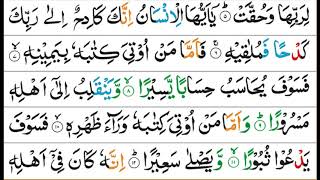 لِرَبِّهَا وَحُقَّتْ ۝۵ يٰۤاَيُّهَا الْاِنْسَانُ اِنَّكَ كَادِحٌ اِلٰى رَبِّكَ
كَدْحًا فَمُلٰقِيْهِ ۝۶ فَاَمَّا مَنْ اُوْتِيَ كِتٰبَهٗ بِيَمِيْنِهٖ ۝۷
فَسَوْفَ يُحَاسَبُ حِسَابًا يَّسِيْرًا ۝۸ وَّيَنْقَلِبُ اِلٰٓى اَهْلِهٖ
مَسْرُوْرًا ۝۹ وَاَمَّا مَنْ اُوْتِيَ كِتٰبَهٗ وَرَآءَ ظَهْرِهٖ ۝۱۰ فَسَوْفَ
يَدْعُوْا ثُبُوْرًا ۝۱۱ وَّيَصْلٰى سَعِيْرًا ۝۱۲ اِنَّهٗ كَانَ فِيْٓ اَهْلِهٖ